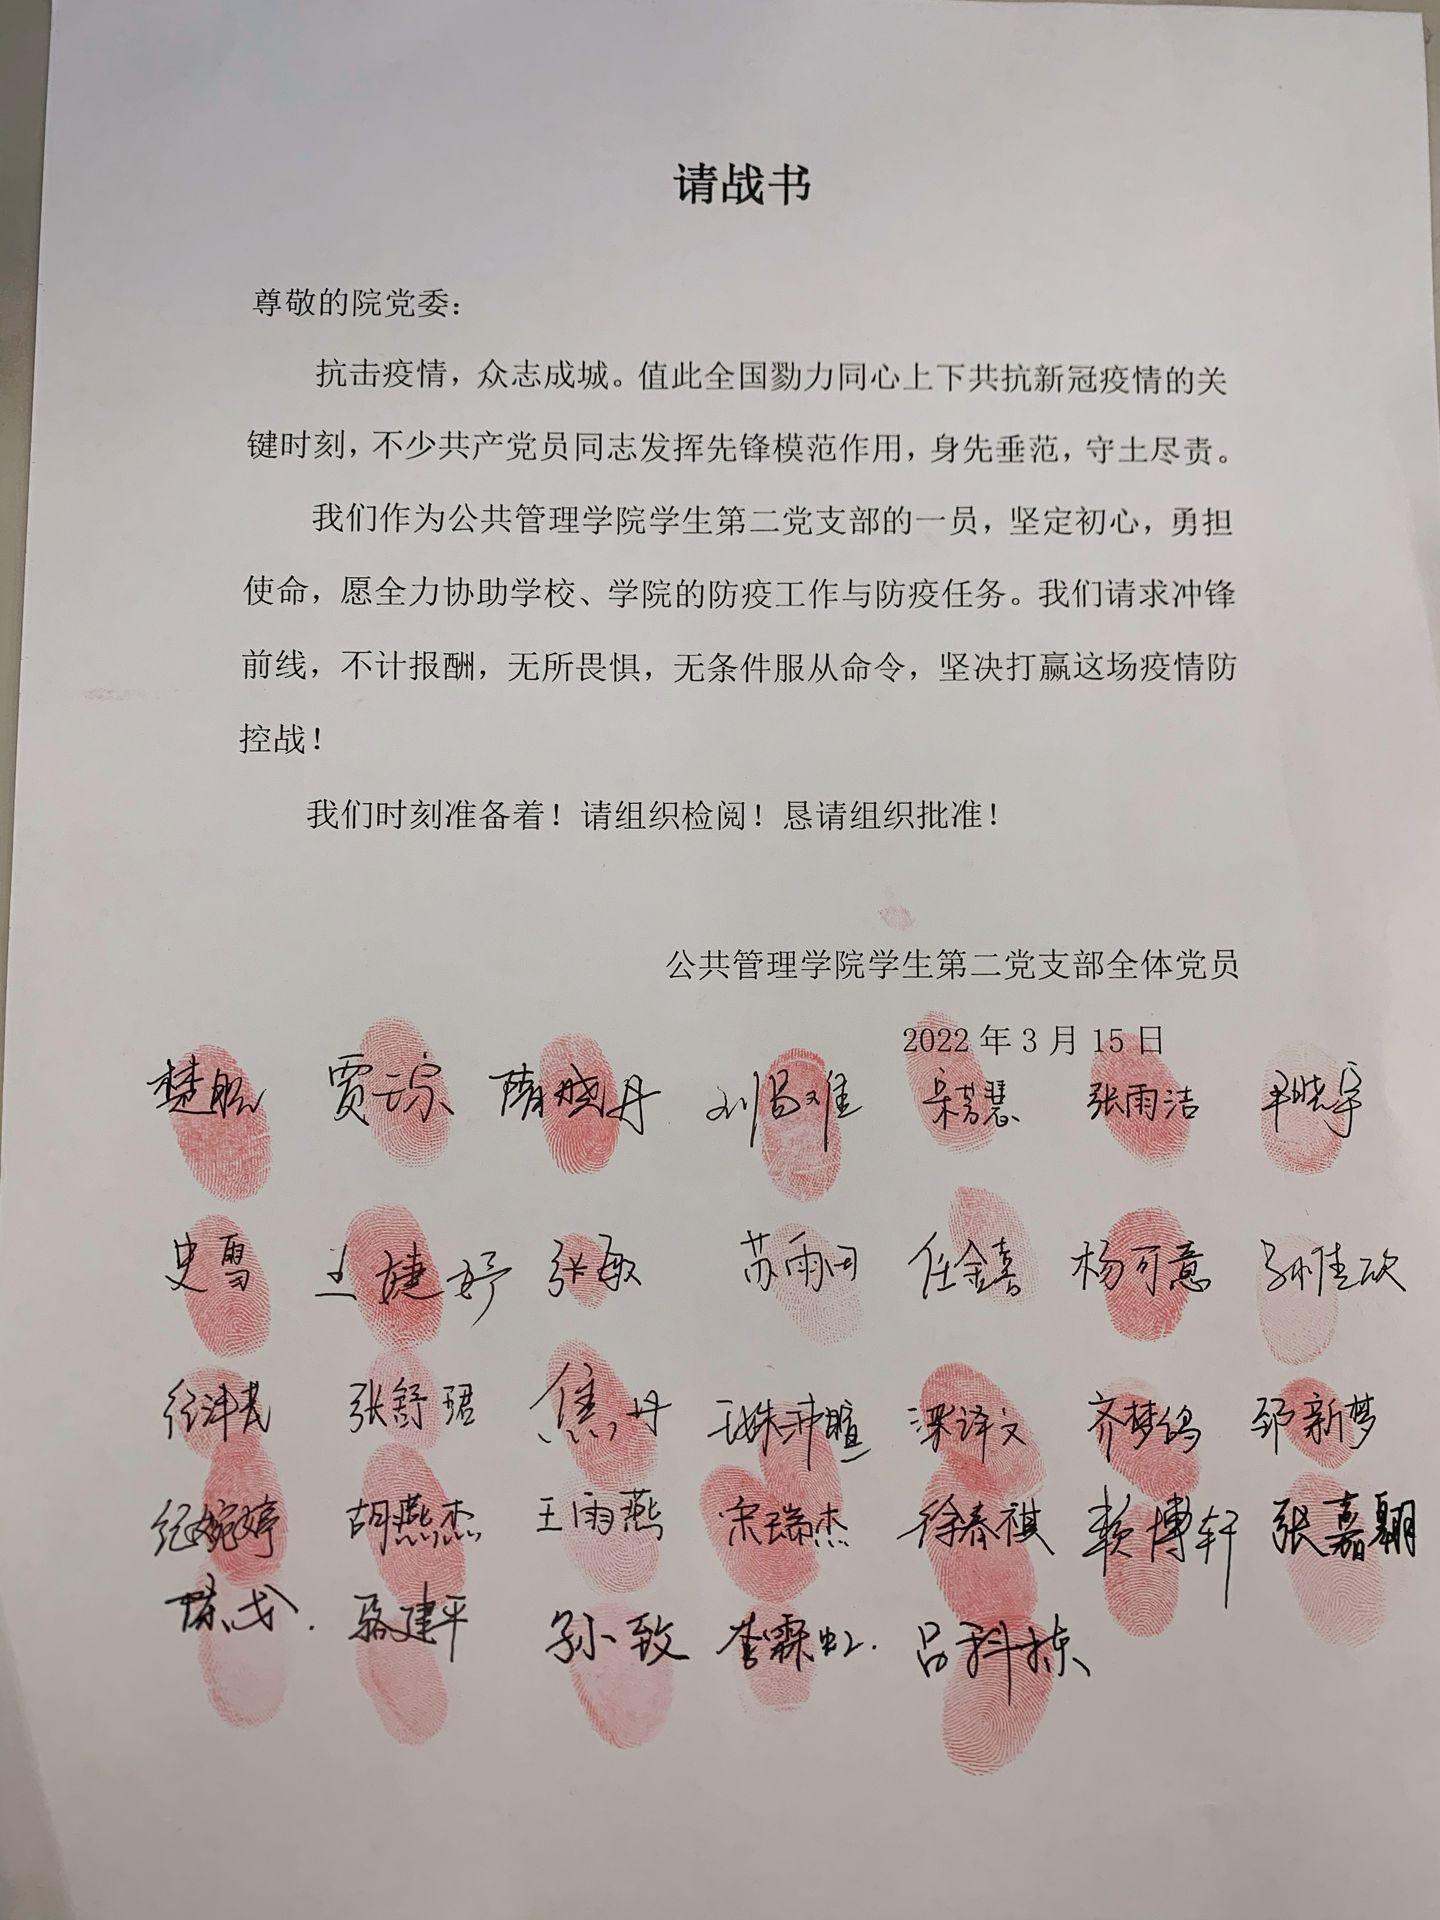 请战书
尊敬的院党委：
抗击疫情，众志成城。值此全国勠力同心上下共抗新冠疫情的关
键时刻，不少共产党员同志发挥先锋模范作用，身先垂范，守土尽责。
我们作为公共管理学院学生第二党支部的一员，坚定初心，勇担
使命，愿全力协助学校、学院的防疫工作与防疫任务。我们请求冲锋
前线，不计报酬，无所畏惧，无条件服从命令，坚决打赢这场疫情防
控战！
我们时刻准备着！请组织检阅！恳请组织批准！
公共管理学院学生第二党支部全体党员
2022 年 3 月 15 日
贾琼 隋晓丹 宋芳慧 张雨洁
王婕婷 张敏 苏雨田 任金喜 杨可意 孙佳欣
张舒珺 焦丹 梁译文 齐梦鸽 郅新梦
纪婉婷 胡燕杰 王雨燕 宋瑞杰 徐春祺 赖博轩 张嘉翱
骆建平 孙致 李霖虹 吕科栋